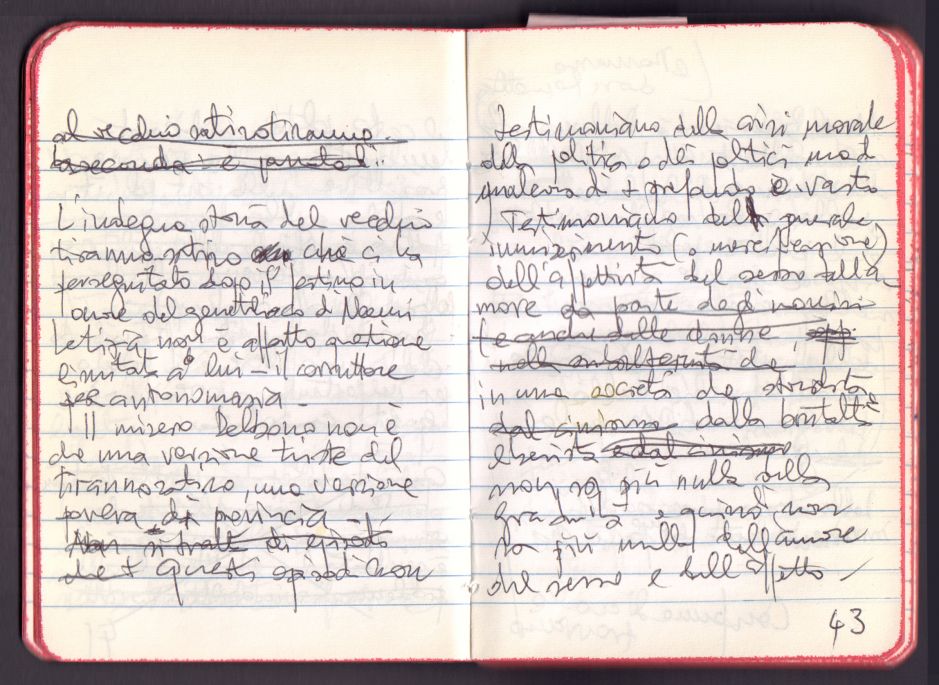 al vecchio satirotiranno.
la seconda: e
L'indegna storia del vecchio
tiranno satiro che ci ha
perseguitato dopo il festino in
onore del genetliaco di Noemi
Letizia non è affatto questione
limitata a lui – il corruttore
per antonomasia –
Il misero Delbono non è
che una versione triste del
tiranno satiro, una versione
povera di provincia –
Non si tratta di episodi
che + Questi episodi non
testimoniano della crisi morale
della politica o dei politici ma di
qualcosa di + profondo e vasto
Testimoniano del generale
(o mercificazione)
dell'affettività del sesso dell'a
more da parte degli uomini
(e anche delle donne,
nella che
in una società che stordita
dal cinismo dalla brutalità
e dal cinismo
non sa più nulla della
gratuità e quindi non
sa più nulla dell'amore
del sesso e dell'affetto –
43